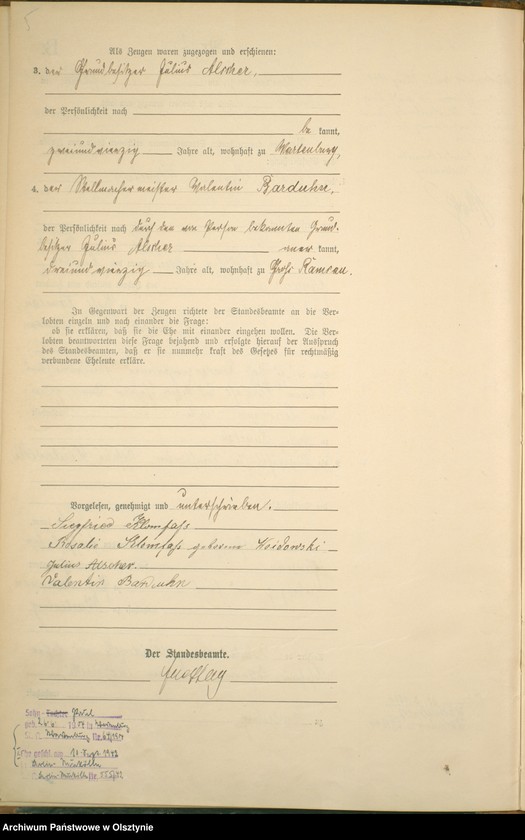 5
Als Zeugen waren zugezogen und erschienen:
3. der Grundbesitzer Julius Alscher,
der Persönlichkeit nach
be kannt,
zweiundvierzig Jahre alt, wohnhaft zu Wartenburg,
4. der Stellmachermeister Valentin Barduhn,
der Persönlichkeit nach durch den von Person bekannten Grund-
besitzer Julius Alscher aner kannt,
dreiundvierzig Jahre alt, wohnhaft zu Groß Ramsau.
In Gegenwart der Zeugen richtete der Standesbeamte an die Ver-
lobten einzeln und nach einander die Frage:
ob sie erklären, daß sie die Ehe mit einander eingehen wollen. Die Ver-
lobten beantworteten diese Frage bejahend und erfolgte hierauf der Ausspruch
des Standesbeamten, daß er sie nunmehr kraft des Gesetzes für rechtmäßig
verbundene Eheleute erkläre.
Vorgelesen, genehmigt und unterschrieben.
Siegfried Klomfaß
Rosalie Klomfaß geborene Woidowski
Julius Alscher.
Valentin Barduhn
Der Standesbeamte.
Sohn Tochter
geb. in
Wartenburg Nr.
Ehe geschl. am Sept.
Berlin Neukölln
Berlin Neukölln Nr.
Archiwum Państwowe w Olsztynie